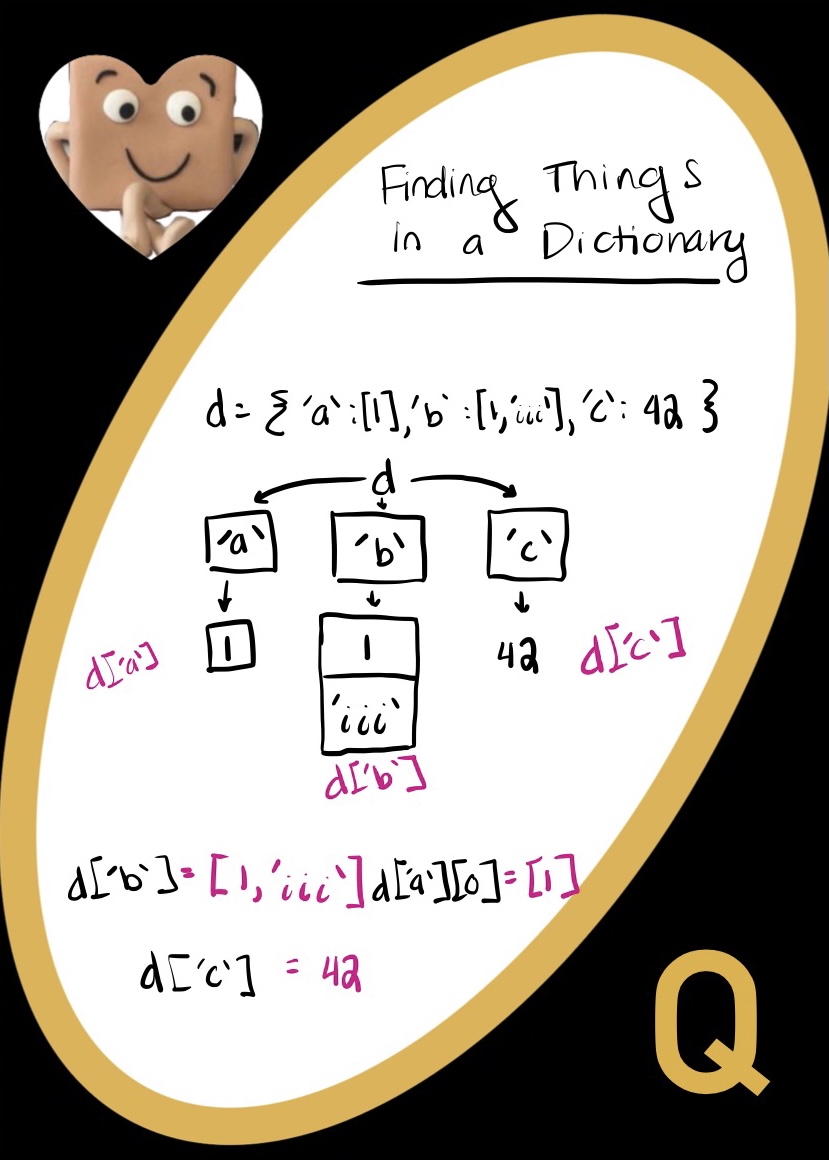 Finding Things
in a Dictionary
d = { 'a' : [1], 'b' : [1, 'iii'], 'c' : 42 }
d
'a' 'b' 'c'
d['a'] 1 1 42 d['c']
'iii'
d['b']
d['b'] = [1, 'iii'] d['a'][0] = [1]
d['c'] = 42
Q